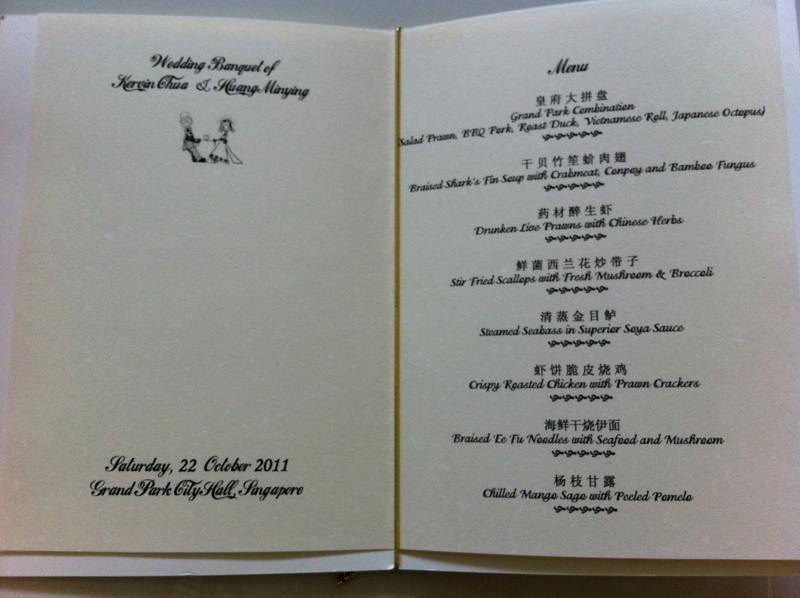 Wedding Banquet of
Kervin Chua & Huang Minying
Saturday, 22 October 2011
Grand Park City Hall, Singapore
Menu
皇府大拼盘
Grand Park Combination
(Salad Prawn, BBQ Pork, Roast Duck, Vietnamese Roll, Japanese Octopus)
干贝竹笙蚧肉翅
Braised Shark's Fin Soup with Crabmeat, Conpoy and Bamboo Fungus
药材醉生虾
Drunken Live Prawns with Chinese Herbs
鲜菌西兰花炒带子
Stir Fried Scallops with Fresh Mushroom & Broccoli
清蒸金目鲈
Steamed Seabass in Superior Soya Sauce
虾饼脆皮烧鸡
Crispy Roasted Chicken with Prawn Crackers
海鲜干烧伊面
Braised Ee Fu Noodles with Seafood and Mushroom
杨枝甘露
Chilled Mango Sago with Peeled Pomelo